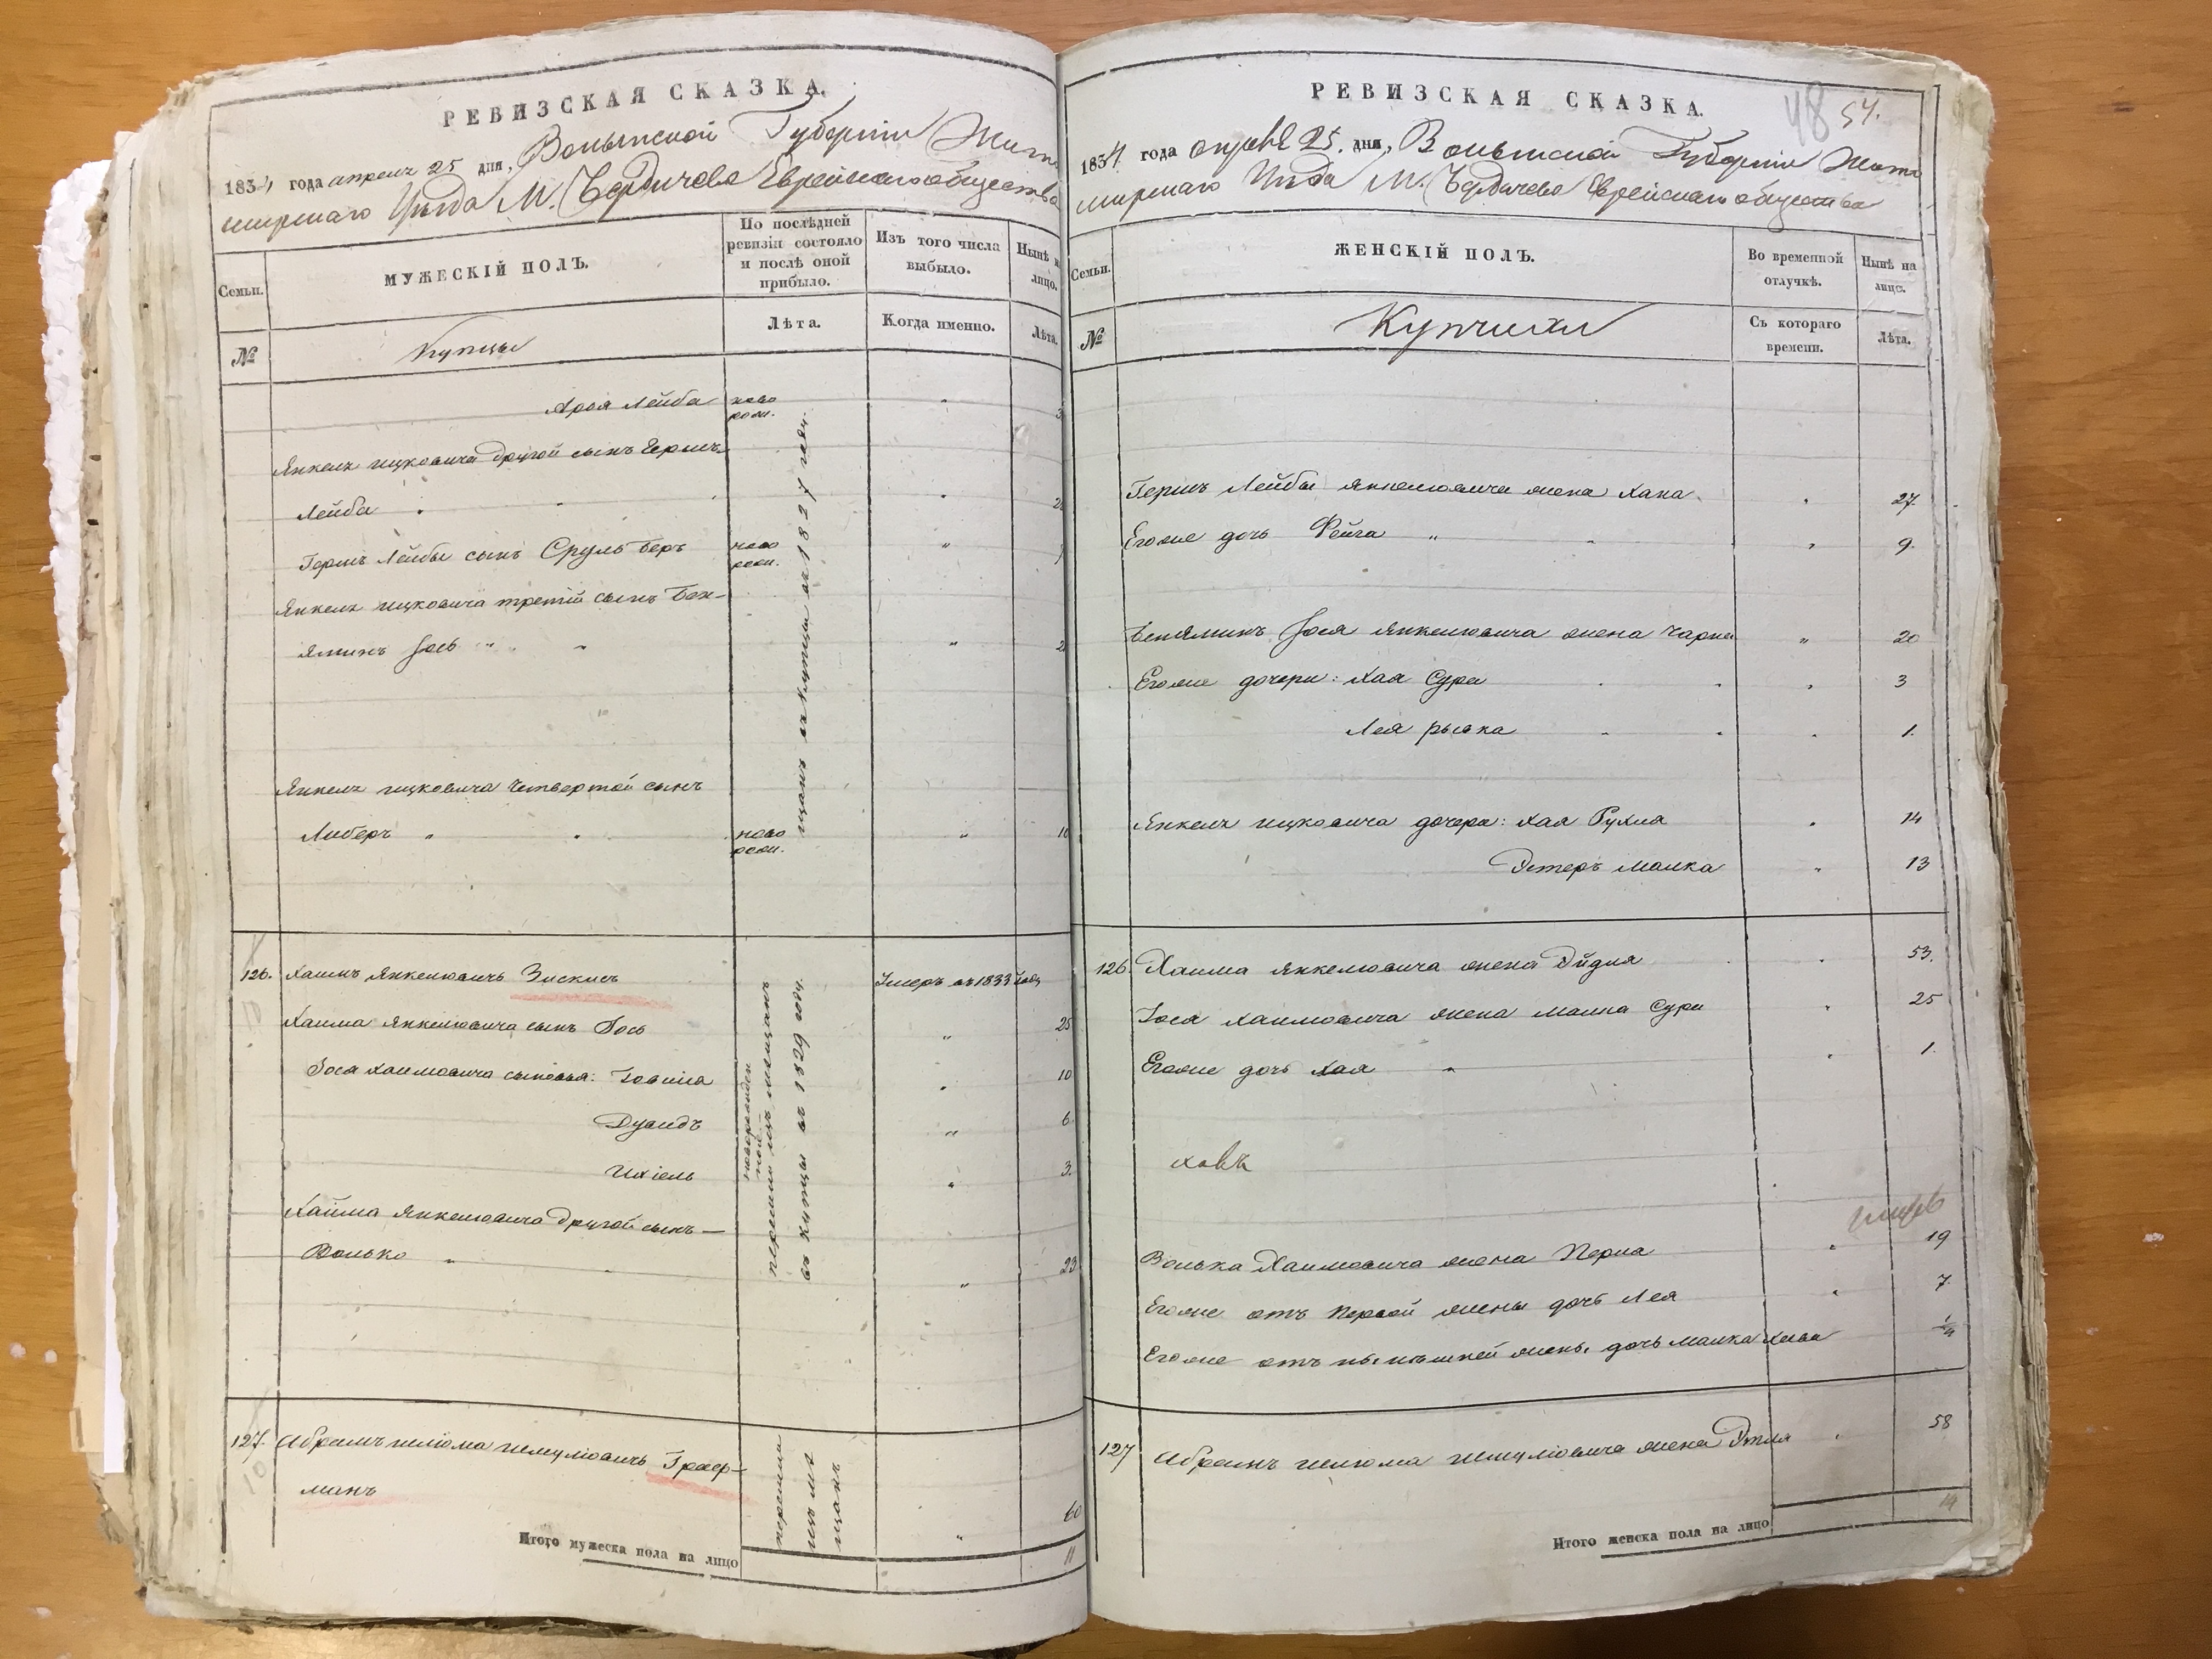 РЕВИЗСКАЯ СКАЗКА.
1834 года апреля 25 дня, Волынской Губернии Жито
мирскаго Уѣзда М. Бердичева Еврейскаго общества
Семьи.
МУЖЕСКІЙ ПОЛЪ.
По послѣдней ревизіи состояло и послѣ оной прибыло.
Изъ того числа выбыло.
Нынѣ н лицо.
№
Купцы
Лѣта.
Когда именно.
Лѣта.
Арон Лейба ново рож. " 3
Янкеля ицковича другой сынъ Герш
Лейба " " 2
Герш Лейбы сынъ Сруль Беръ ново рож. "
Янкеля ицковича третій сынъ Бен-
яминъ Іось " " 2
Янкеля ицковича четвертой сынъ
Либеръ " " ново рож. " 10
щанъ въ купцы въ 1827 году.
126. Хаимъ Янкелювичъ Зискисъ Умеръ въ 1833 году
Хаима Янкелювича сынъ Іось " 25
Іося Хаимовича сыновья: Іовшіа " 10
Дувидъ " 6
Ихіель " 3.
Хайма Янкелювича другой сынъ —
Волько " " 23
новорожден ной
перешли изъ мещанъ
въ купцы въ 1829 году.
127. Абрамъ шліома шмулйовичъ Граер-
манъ " 60
перешли
изъ ме
щанъ
Итого мужеска пола на лицо 11
РЕВИЗСКАЯ СКАЗКА.
48 54.
1834 года апрѣля 25. дня, Волынской Губерніи Жито
мирскаго Уѣзда М. Бердичева Еврейскаго общества
Семьи.
ЖЕНСКІЙ ПОЛЪ.
Во временной отлучкѣ.
Нынѣ на лицо.
№
Купчихи
Съ котораго времени.
Лѣта.
Герш Лейбы Янкелювича жена Хана " 27.
Егоже дочь Фейга " " 9.
Беняминъ Іося Янкелювича жена Чарна " 20
Егоже дочери: Хая Сура " 3
Лея рывка " 1.
Янкеля ицковича дочери: Хая Рухля " 14
Эстеръ малка " 13
126. Хаима Янкелювича жена Эйдля " 53.
Іося Хаимовича жена малка Сура " 25
Егоже дочь Хая " " 1.
ховъ
Волька Хаимовича жена Перла " 19
Егоже отъ первой жены дочь Лея " 7.
Егоже отъ нынѣшней жены дочь малка Хава
127 Абрамъ шлюма шмулйовича жена Этля " 58
Итого женска пола на лицо 14